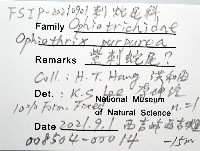 FSTP-20210901 刺蛇尾科
Family Ophiotrichidae
Ophiothrix purpurea
Remarks 紫刺蛇尾?
Coll: H.T. Hung 洪
Det.: K.S. Lee 李坤瑄
National Museum
10% Form. Fixed n.=1
of Natural Science
Date 2021.9.1
008504-00014 -15m